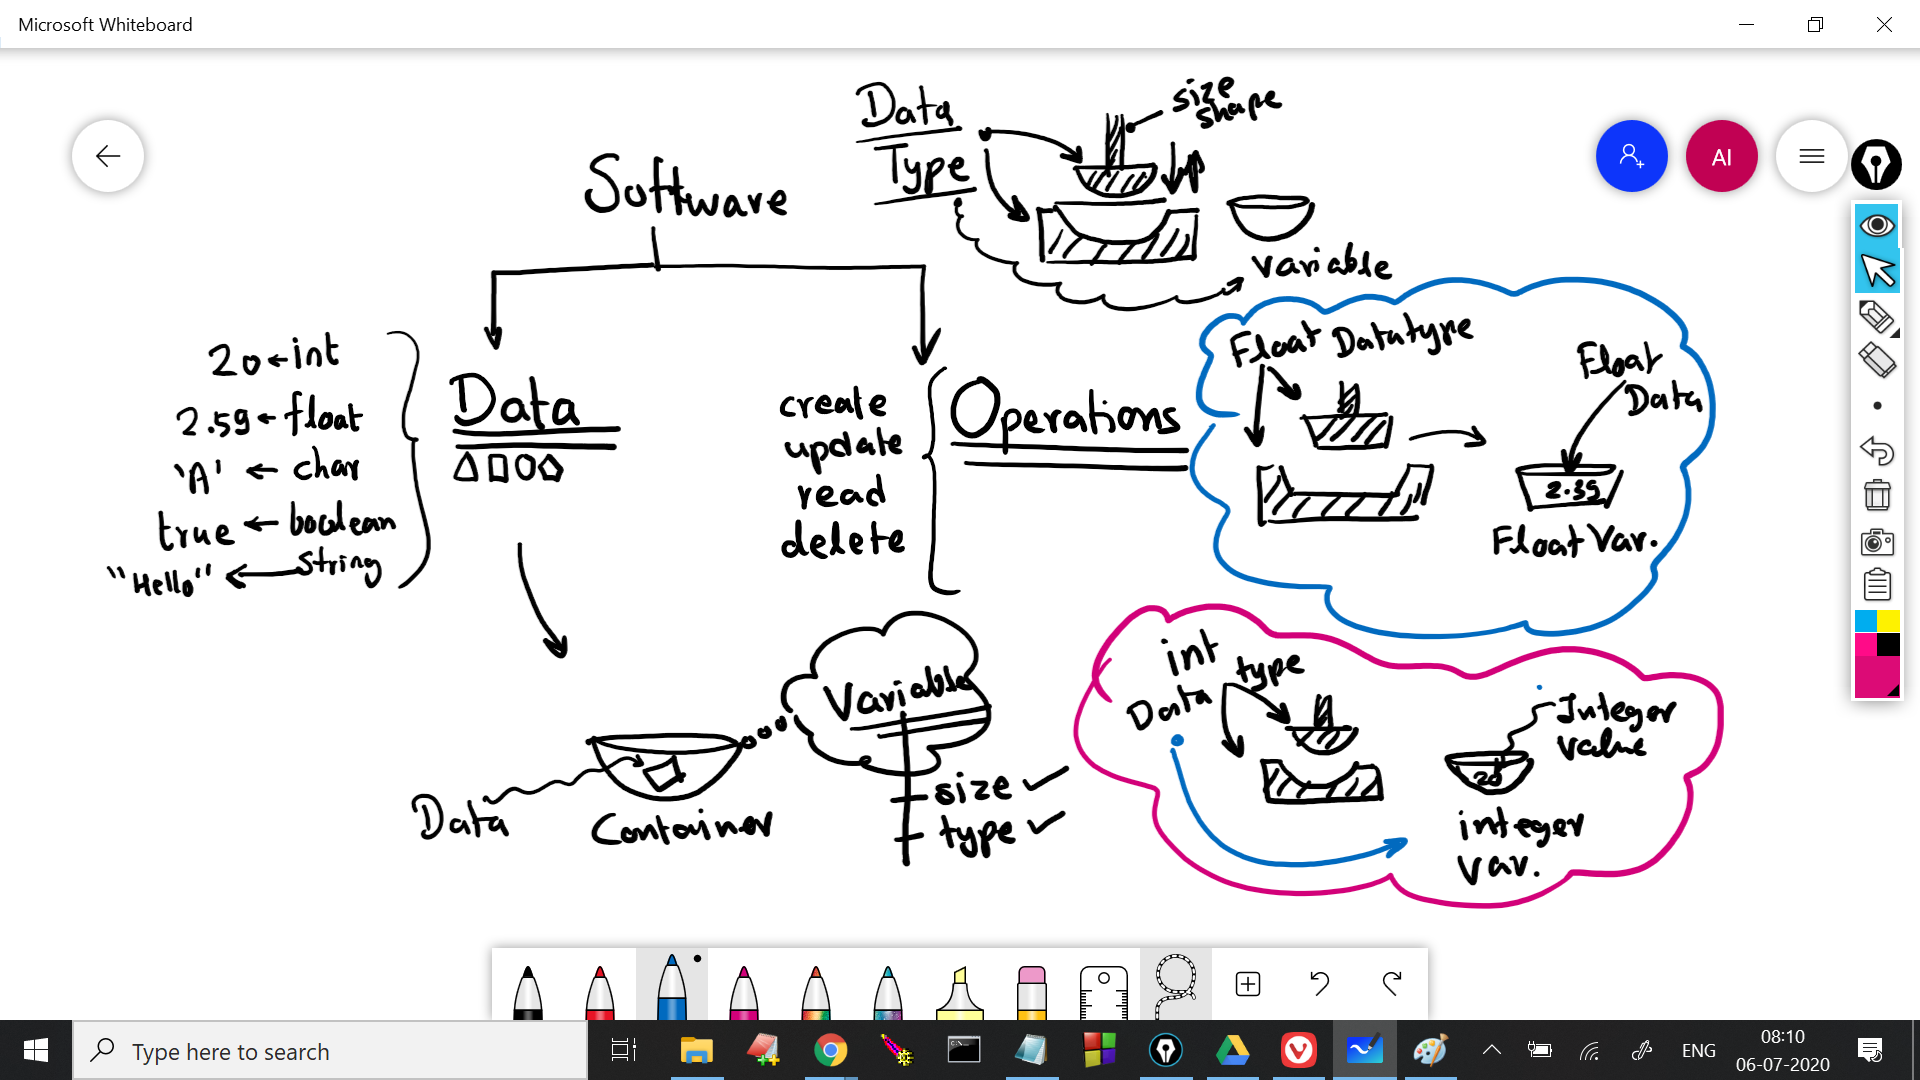 Microsoft Whiteboard
Data
Type
size
shape
variable
AI
Software
20 ← int
2.59 ← float
'A' ← char
true ← boolean
"Hello" ← string
Data
create
update
read
delete
Operations
Float Datatype
Float
Data
2.39
Float Var.
Variable
size ✓
type ✓
Data
Container
int
Data type
Integer
value
20
integer
var.
Type here to search
ENG
08:10
06-07-2020